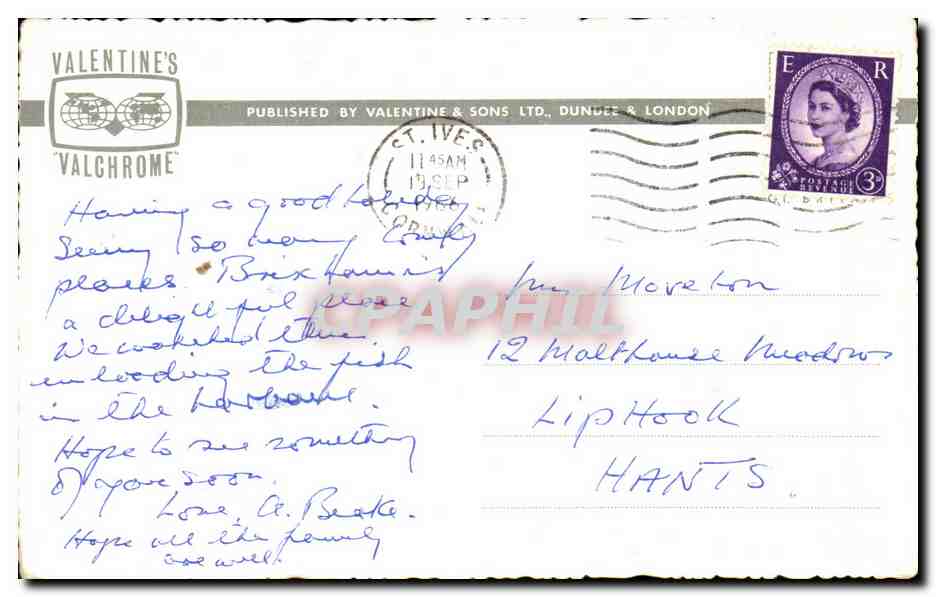 VALENTINE'S
"VALCHROME"
PUBLISHED BY VALENTINE & SONS LTD., DUNDEE & LONDON
E R
POSTAGE
REVENUE
3D
ST. IVES
11 45AM
19 SEP
CORNWALL
Having a good holiday
Seeing so many lovely
places. Brixham is
a delightful place
We watched them
unloading the fish
in the harbour.
Hope to see something
of you soon.
Love, A. Beake.
Hope all the family
are well.
Moreton
12 Malthouse Meadows
LipHook
HANTS.
CPAPHIL